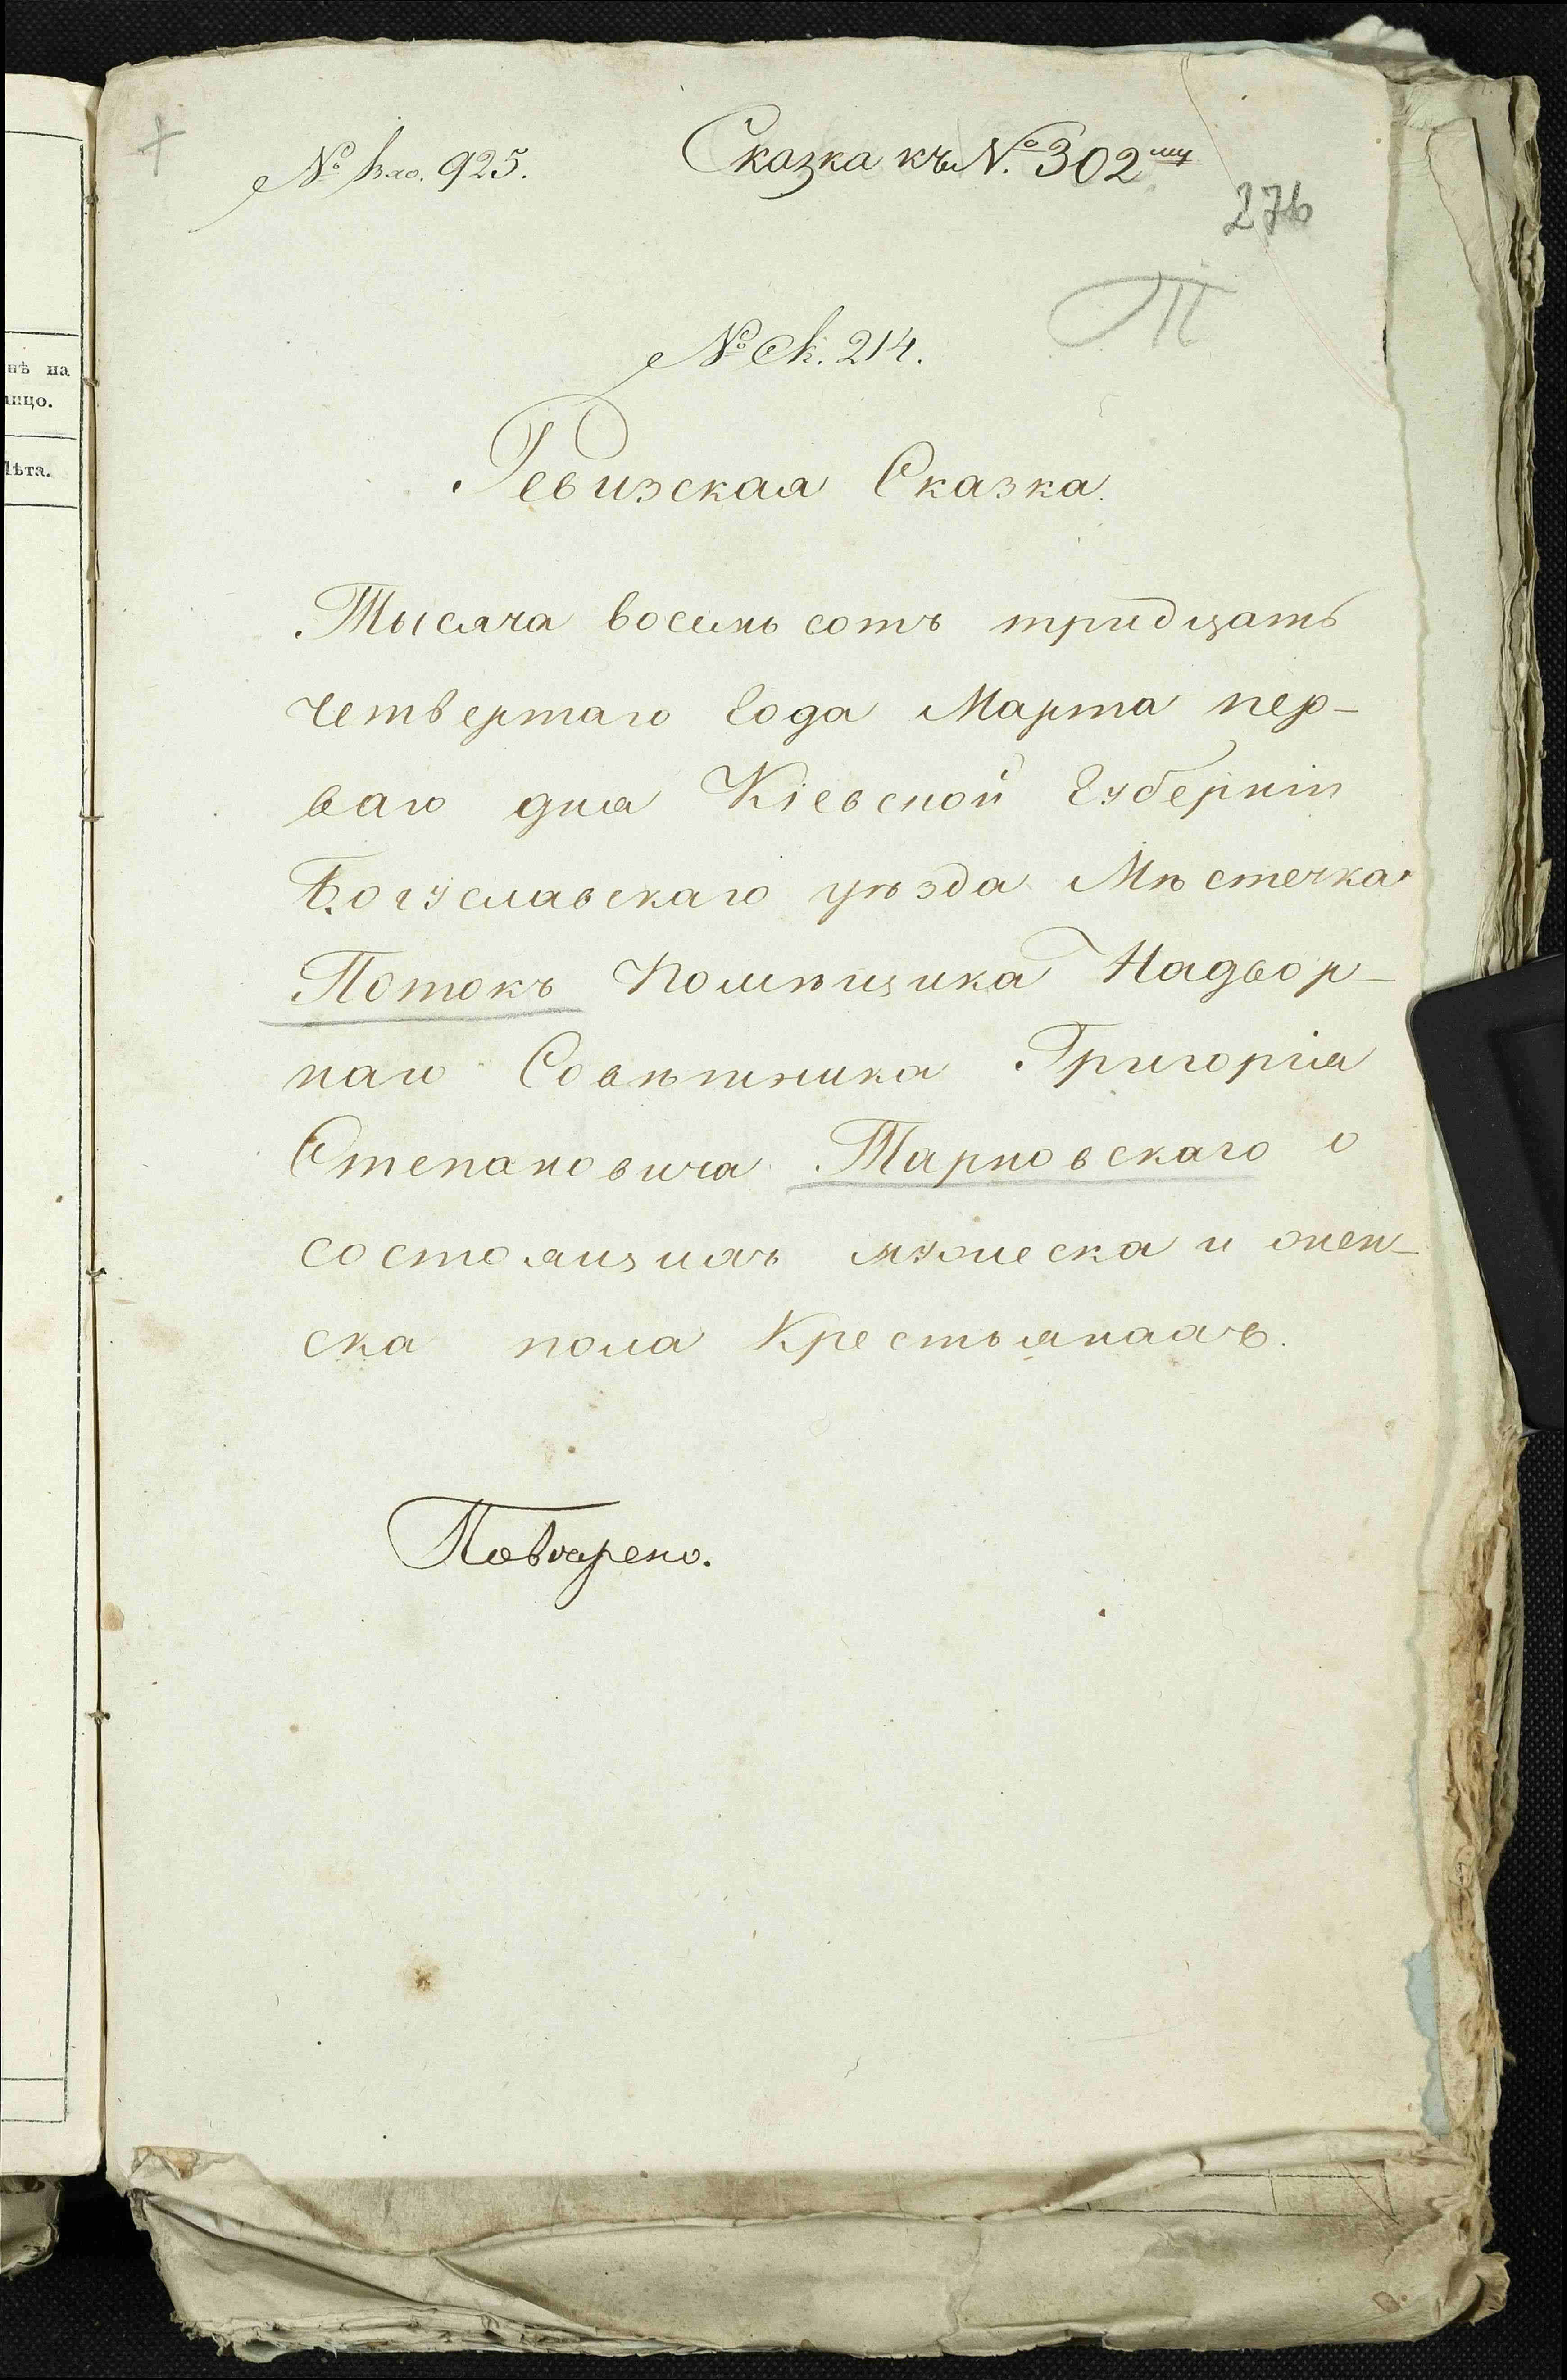 № вхо. 925.
Сказка къ №. 302му
276
П
№ Ск. 214.
Ревизская Сказка.
Тысяча восемь сотъ тридцать
четвертаго Года Марта пер-
ваго дня Кіевской Губерніи
Богуславскаго уѣзда Мѣстечка
Потокъ Помѣщика Надвор-
наго Совѣтника Григорія
Степановича Тарновскаго о
состоящихъ мужеска и жен-
ска пола Крестьянахъ.
нѣ на
лицо.
Лѣта.